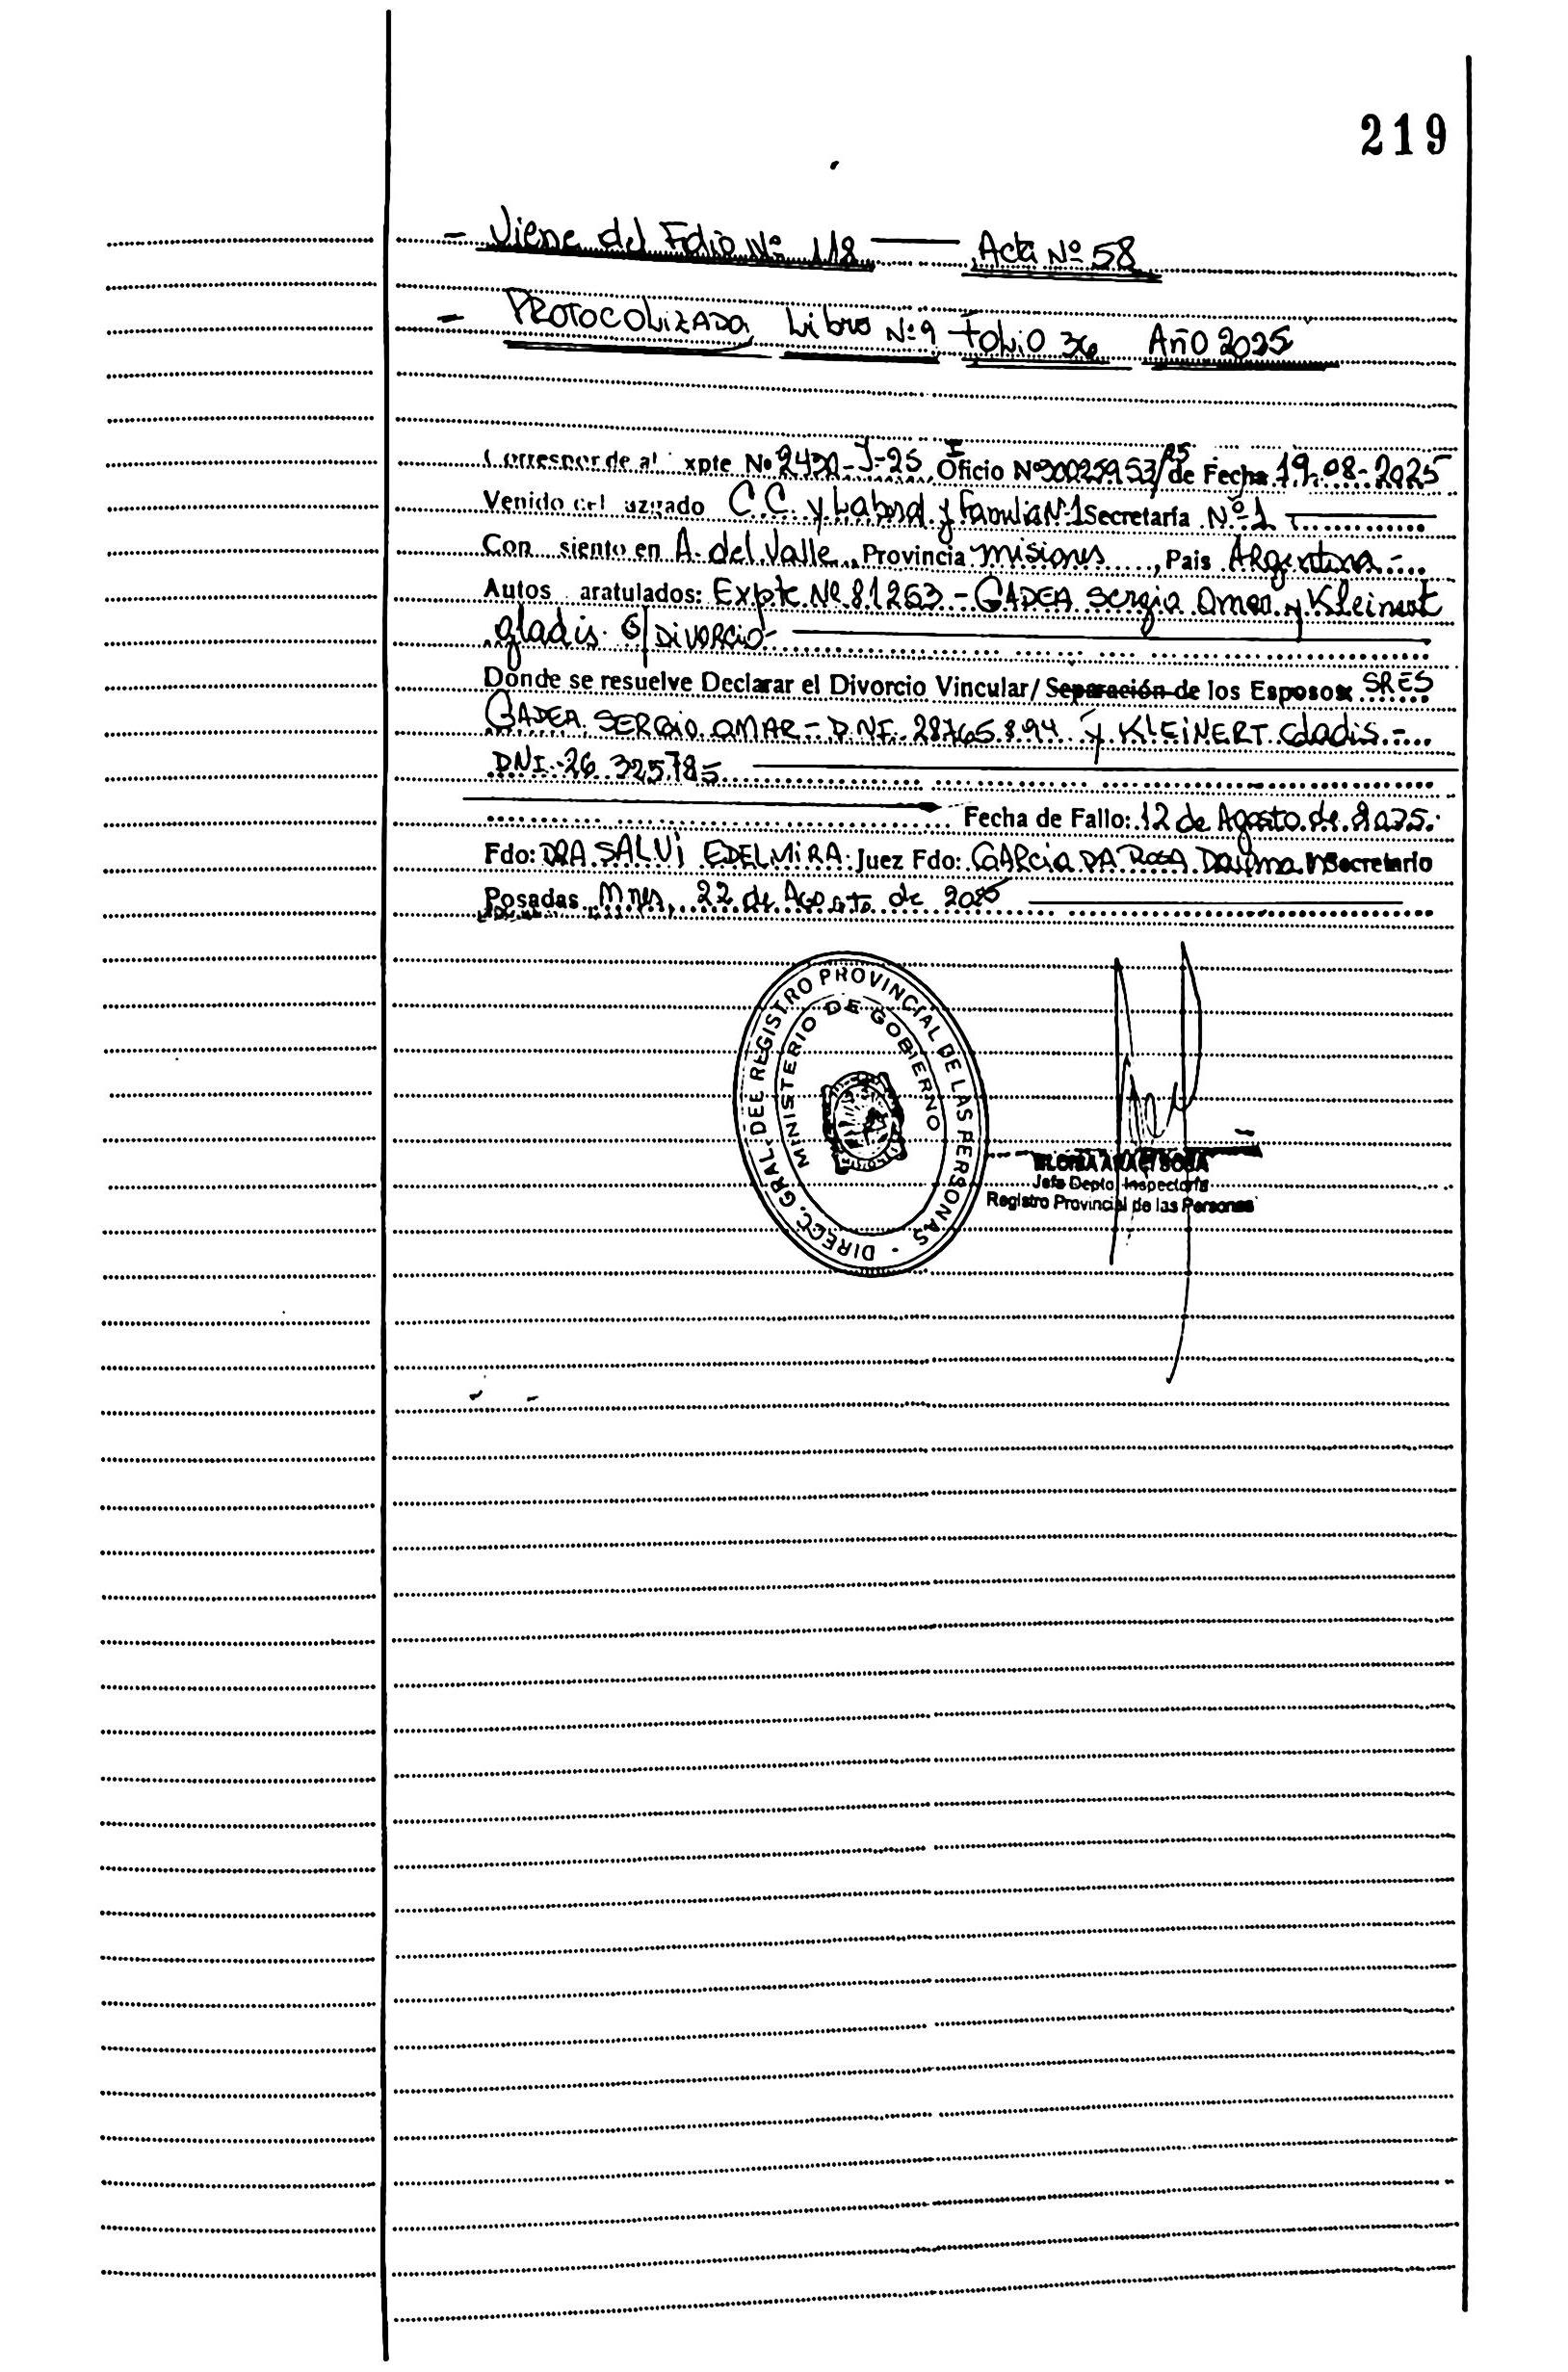 219
- Viene del Folio Nº 118 — Acta Nº 58
- PROTOCOLIZADA Libro Nº 9 Folio 36 AÑO 2025
Corresponde al xpte Nº 2492-J-25 Oficio Nº de Fecha 19-08-2025
Venido del uzgado C.C. y Laboral y Familia Nº 1 Secretaría Nº 1
Con siento en A. del Valle, Provincia Misiones, Pais Argentina -
Autos aratulados: Expte Nº 81263 - GADEA Sergio Omar y Kleinert
gladis S/ DiVORCiO -
Donde se resuelve Declarar el Divorcio Vincular/ Separación de los Esposos SRES
GADEA SERGIO OMAR - DNI 28765.894 y KLEiNERT Gladis -
DNI - 26 325785
Fecha de Fallo: 12 de Agosto de 2025.
Fdo: DRA SALVI EDELMIRA Juez Fdo: GARCIA DA ROSA Secretario
Posadas, Mnes, 22 de Agosto de 2025
DIRECC. GRAL. DEE REGISTRO PROVINCIAL DE LAS PERSONAS -
MINISTERIO DE GOBIERNO
SOSA
Jefe Depto. Inspectoría
Registro Provincial de las Personas